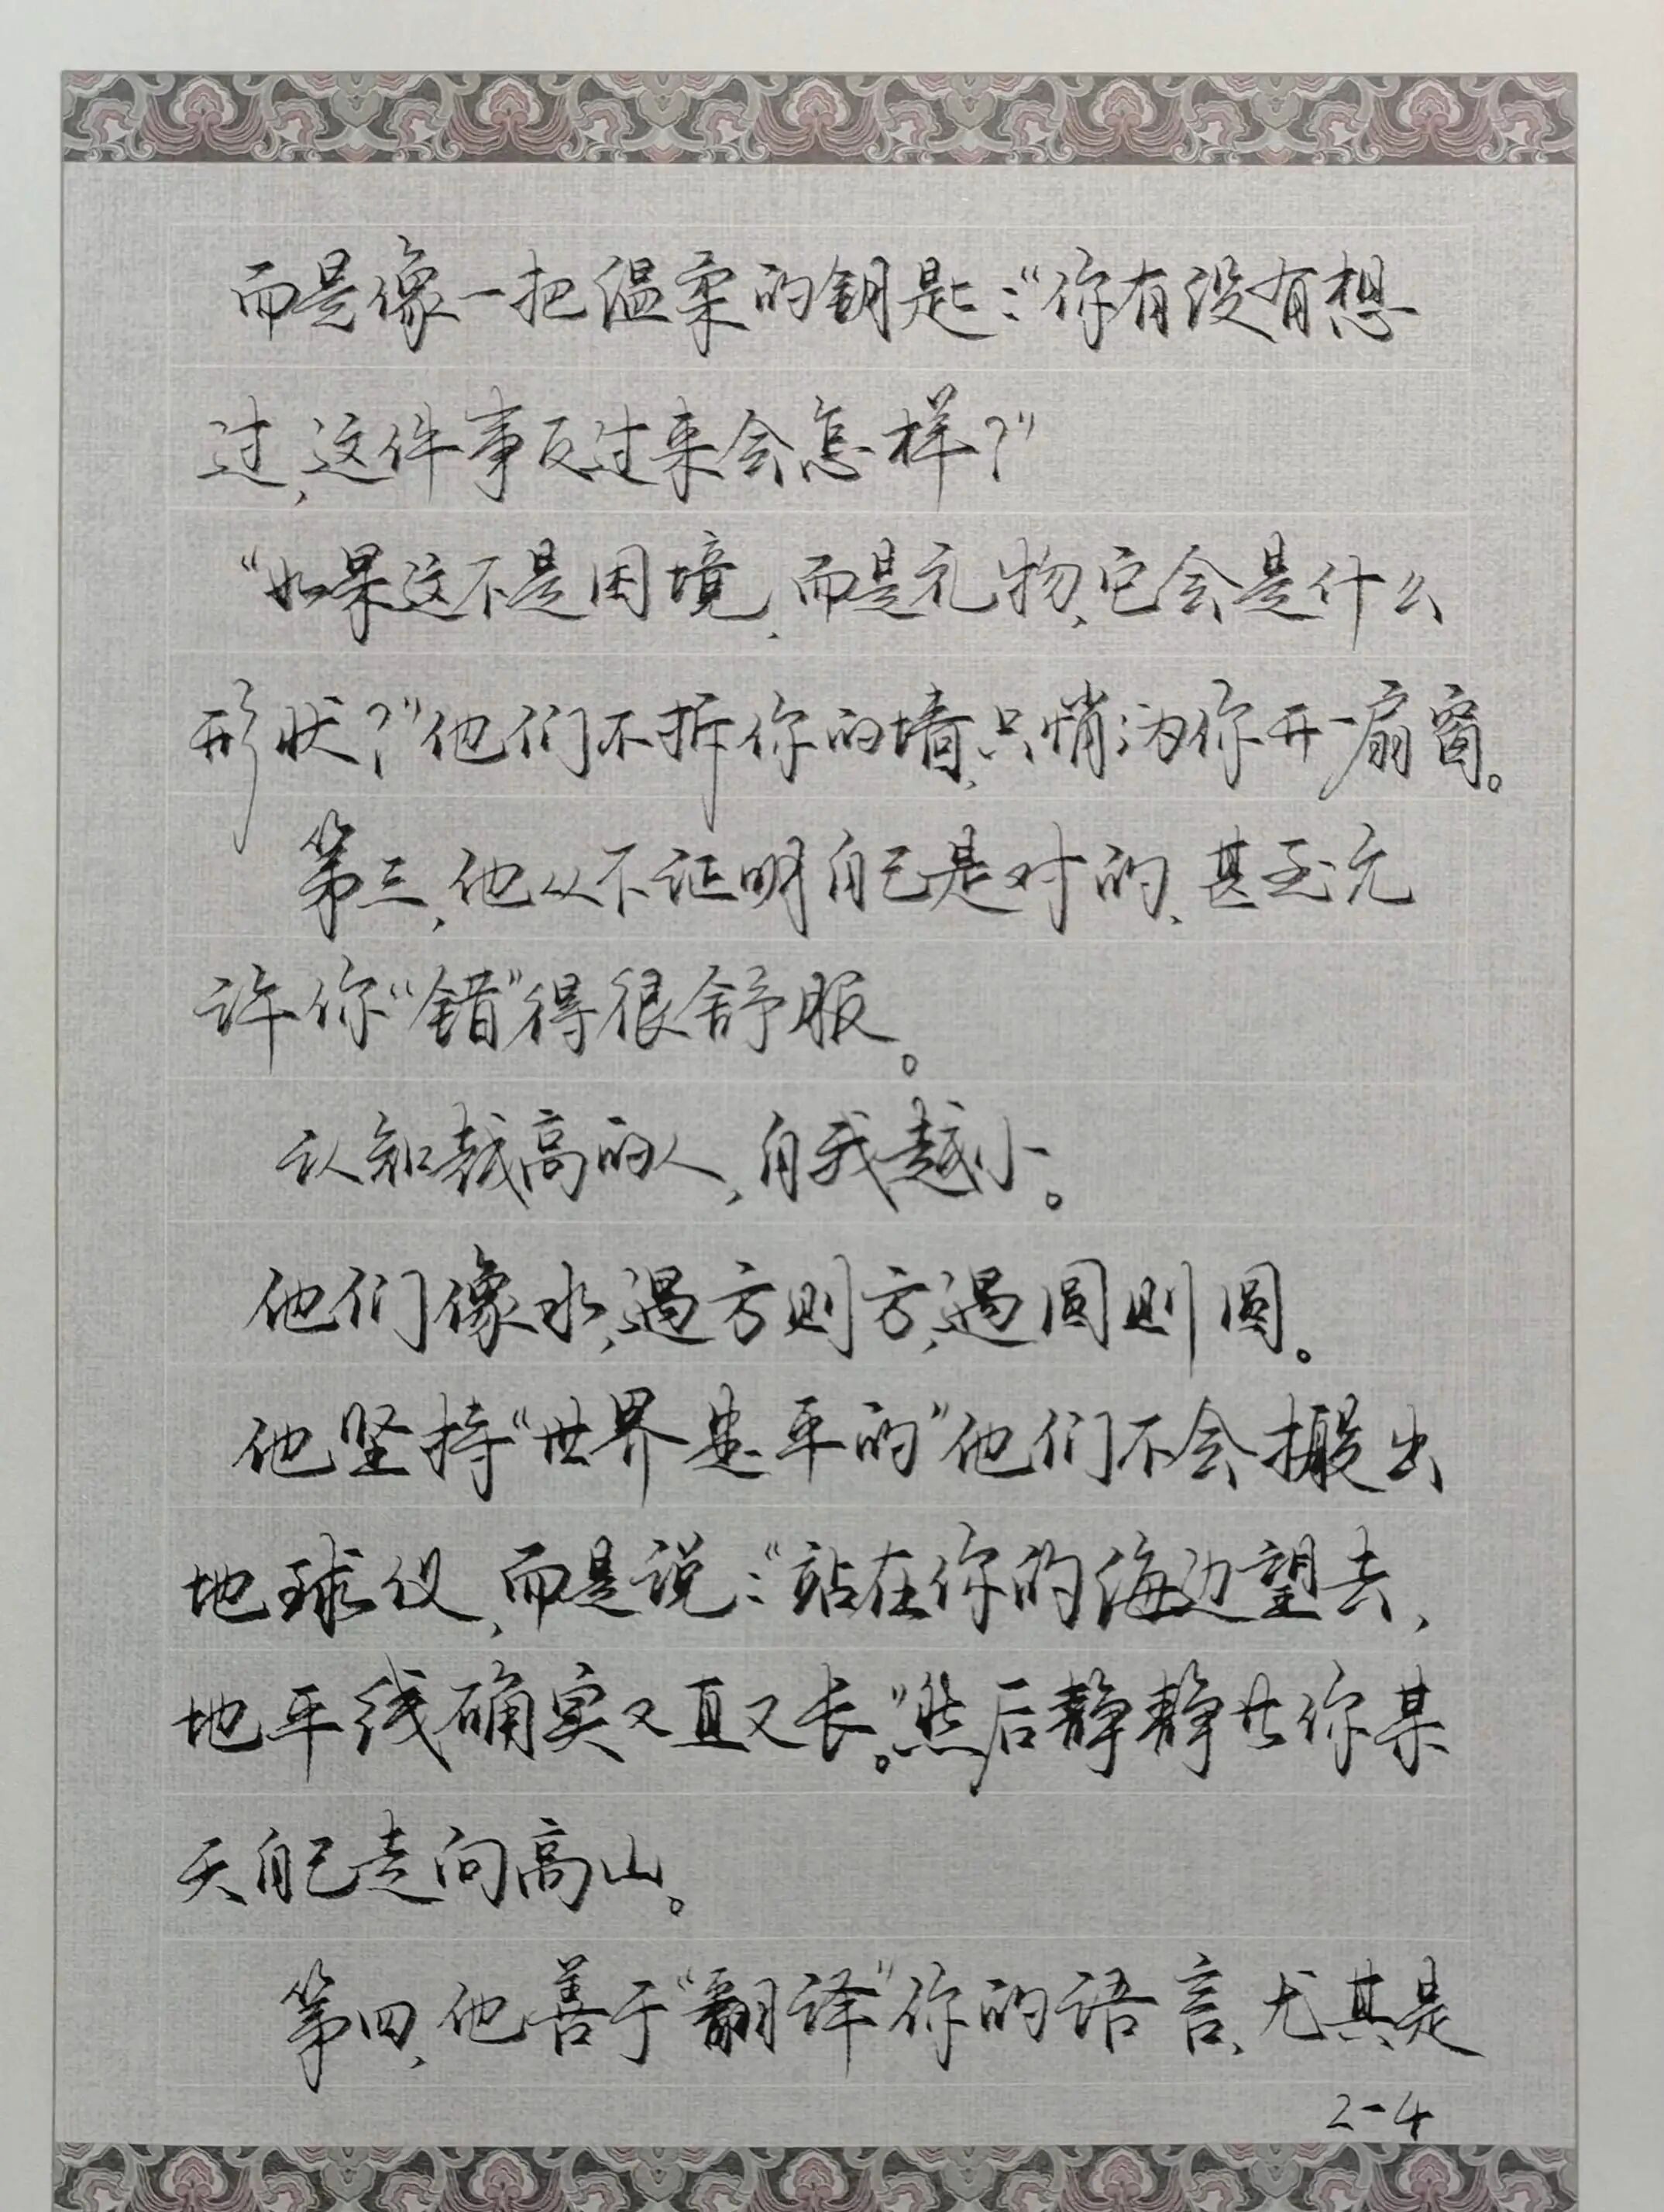 而是像一把温柔的钥匙:“你有没有想
过,这件事反过来会怎样?”
“如果这不是困境,而是礼物,它会是什么
形状?”他们不拆你的墙,只悄悄为你开一扇窗。
第三,他从不证明自己是对的,甚至允
许你“错”得很舒服。
认知越高的人,自我越小。
他们像水,遇方则方,遇圆则圆。
他坚持“世界是平的”他们不会搬出
地球仪,而是说:“站在你的海边望去,
地平线确实又直又长。”然后静静等你某
天自己走向高山。
第四,他善于“翻译”你的语言,尤其是
2-4